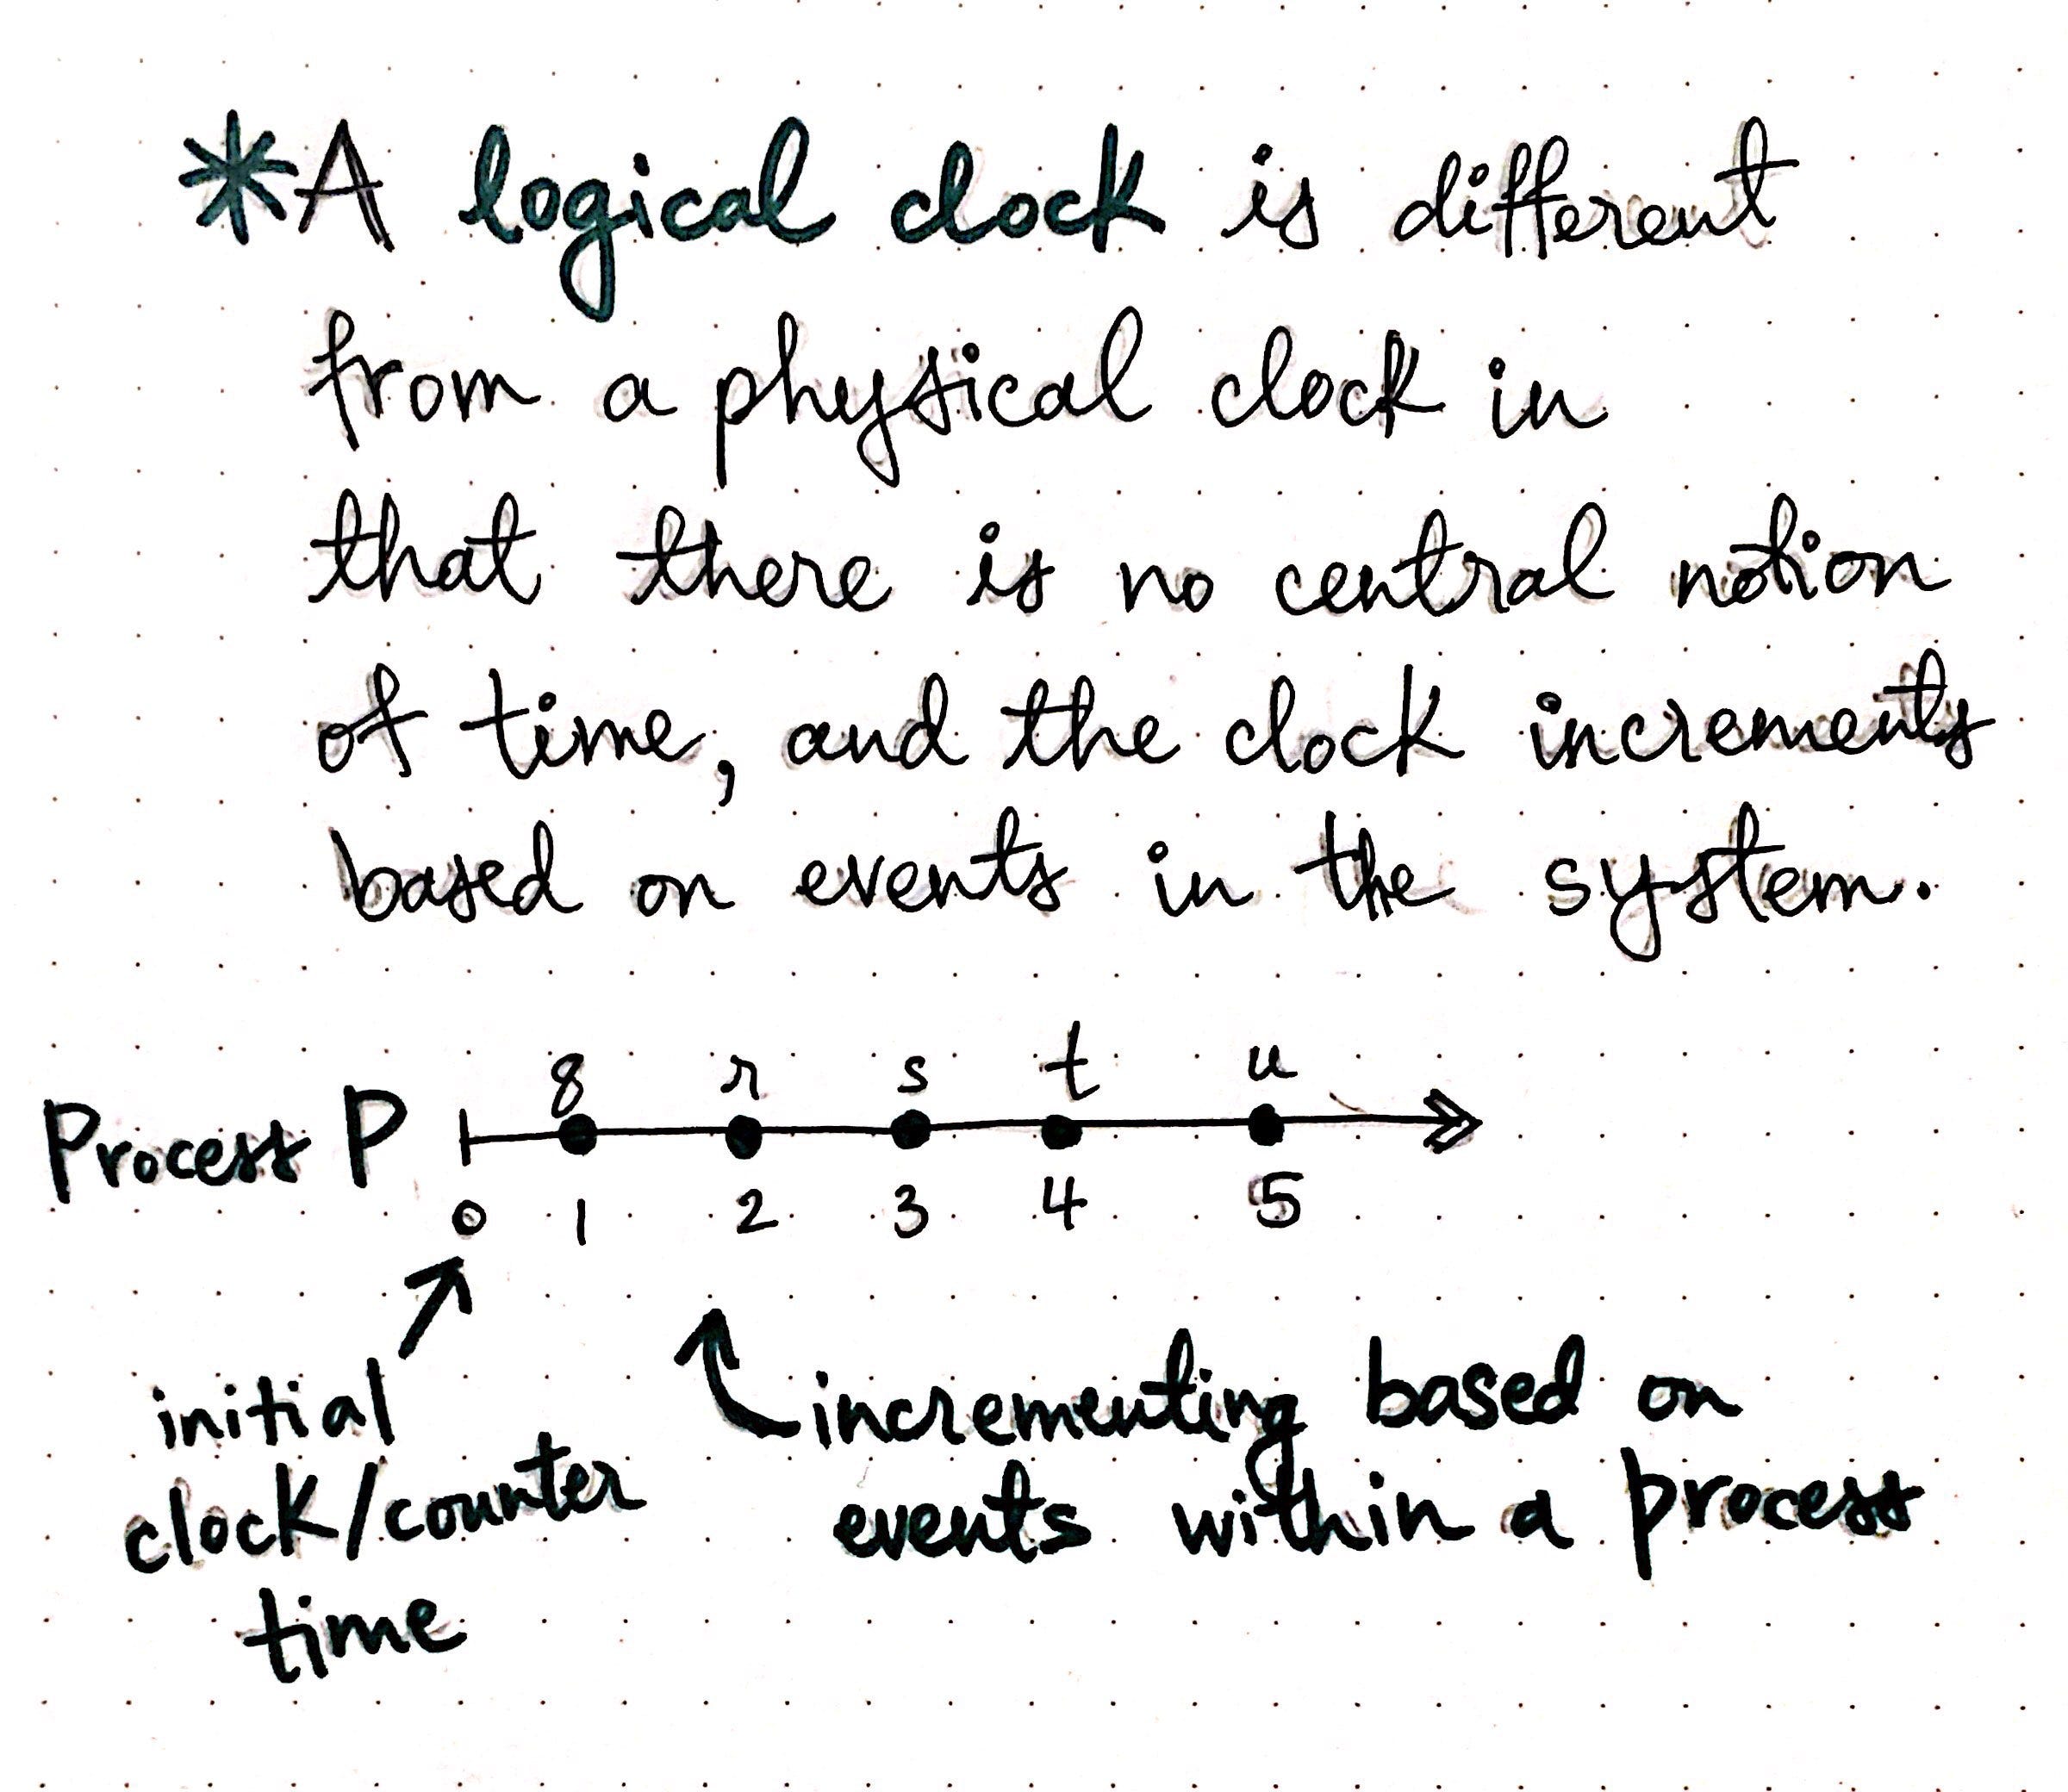 *A logical clock is different
from a physical clock in
that there is no central notion
of time, and the clock increments
based on events in the system.
q r s t u
Process P
0 1 2 3 4 5
initial
clock/counter
time
incrementing based on
events within a process